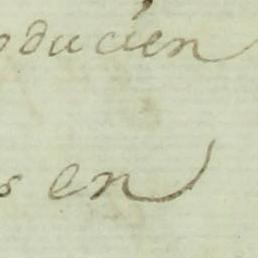 oducien
s en